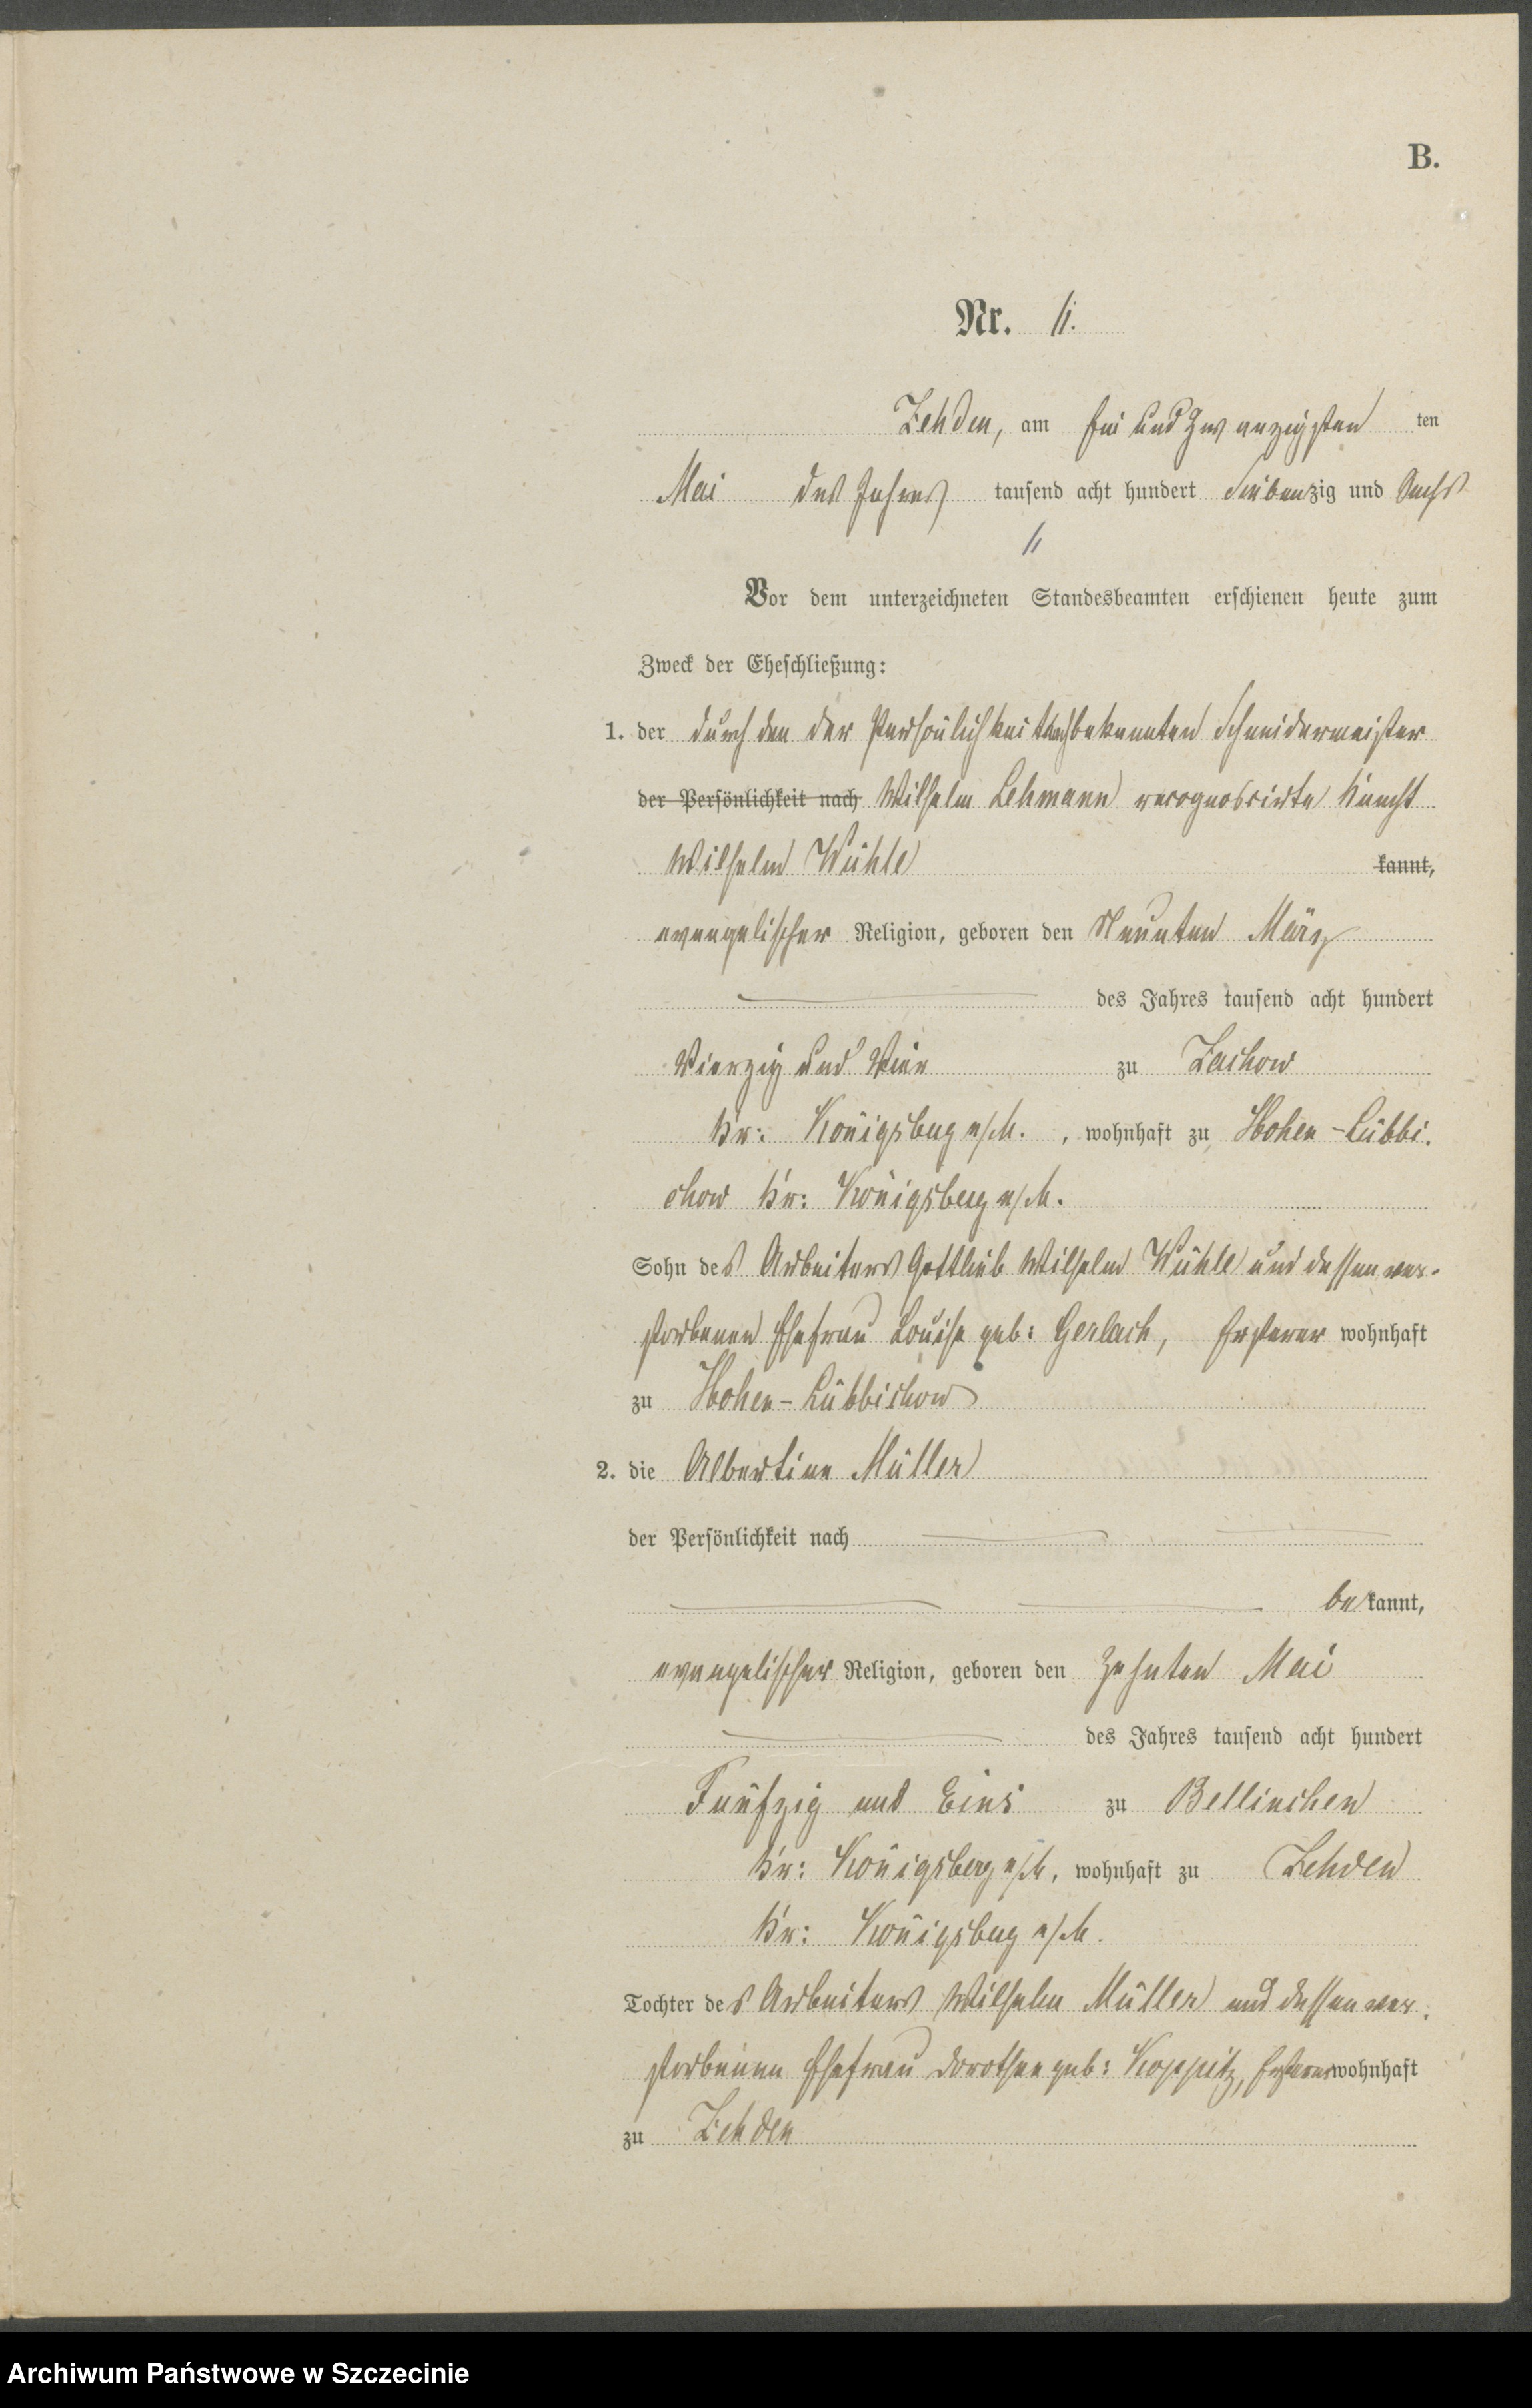 B.
Nr. 11.
Zehden, am Ein und Zwanzigsten ten
Mai des Jahres tausend acht hundert Siebenzig und Sechs
Vor dem unterzeichneten Standesbeamten erschienen heute zum
Zweck der Eheschließung:
1. der durch den der Persönlichkeit nach bekannten Schneidermeister
der Persönlichkeit nach Wilhelm Lehmann recognoscirte Knecht
Wilhelm Wühle kannt,
evangelischer Religion, geboren den Neunten März
des Jahres tausend acht hundert
Vierzig und Vier zu Zachow
Kr: Königsberg n/M. , wohnhaft zu Hohen-Lübbi-
chow Kr: Königsberg n/M.
Sohn des Arbeiters Gottlieb Wilhelm Wühle und dessen ver-
storbenen Ehefrau Louise geb: Gerlach, Ersterer wohnhaft
zu Hohen-Lübbichow
2. die Albertine Müller
der Persönlichkeit nach
bekannt,
evangelischer Religion, geboren den Zehnten Mai
des Jahres tausend acht hundert
Fünfzig und Eins zu Bellinchen
Kr: Königsberg n/M, wohnhaft zu Zehden
Kr: Königsberg n/M.
Tochter des Arbeiters Wilhelm Müller und dessen ver-
storbenen Ehefrau Dorothee geb: Koppitz, Ersterer wohnhaft
zu Zehden
Archiwum Państwowe w Szczecinie